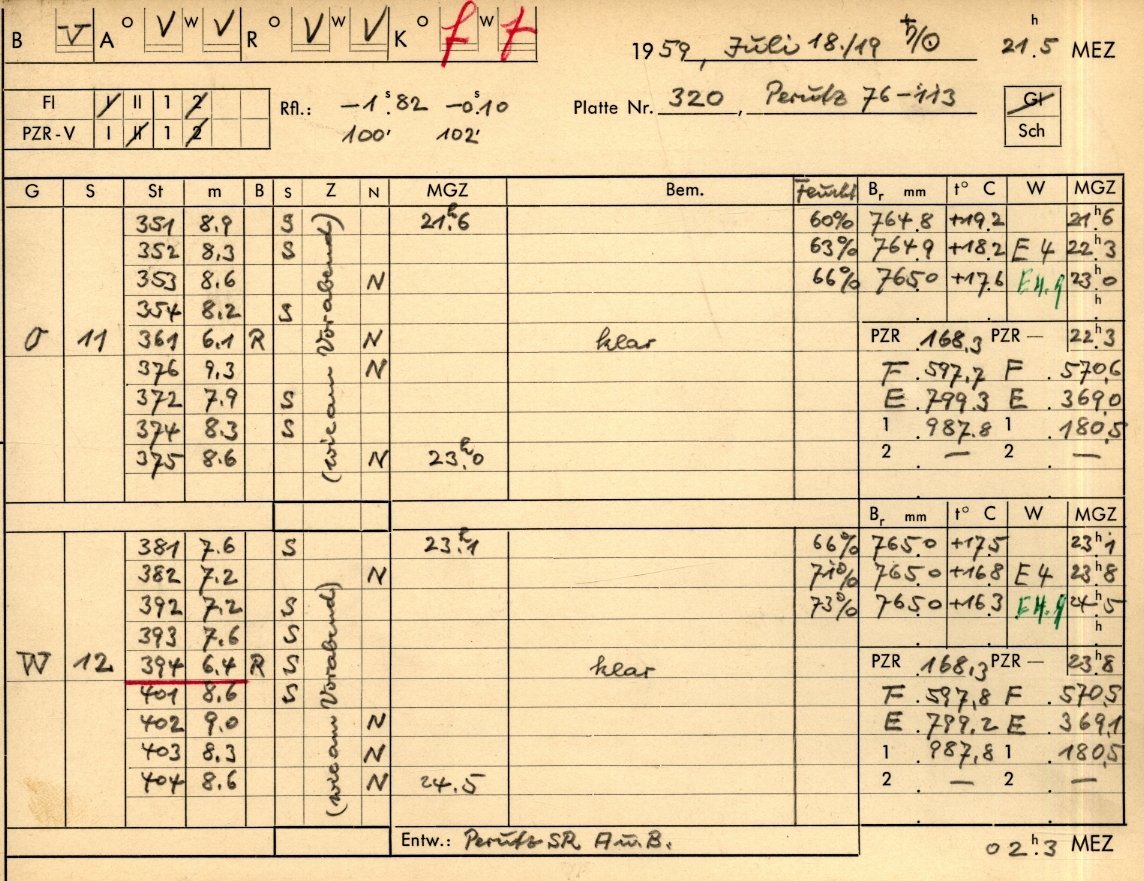 B V A O V W V R O V W V K O f W f
1959, Juli 18./19 ♄/☉ 21.5 h MEZ
Fl I II 1 2
PZR-V I II 1 2
Rfl.: −1.82 s −0.10 s
100' 102'
Platte Nr. 320, Perutz 76-113
Gl
Sch
G S St m B S Z N MGZ Bem. Feucht Br mm t° C W MGZ
351 8.9 S 21.6 h 60% 764.8 +19.2 21.6 h
352 8.3 S 63% 764.9 +18.2 E 4 22.3 h
353 8.6 N 66% 765.0 +17.6 E4.9 23.0 h
354 8.2 S h
O 11 361 6.1 R N klar PZR 168,3 PZR — 22.3 h
376 9.3 N F 597.7 F 570,6
372 7.9 S E 799.3 E 369,0
374 8.3 S 1 987.8 1 180,5
375 8.6 N 23.0 h 2 — 2 —
(wie am Vorabend)
Br mm t° C W MGZ
381 7.6 S 23.1 h 66% 765.0 +17.5 23.1 h
382 7.2 N 71% 765.0 +16.8 E 4 23.8 h
392 7.2 S 73% 765.0 +16.3 E4.9 24.5 h
393 7.6 S h
W 12 394 6.4 R S klar PZR 168,3 PZR — 23.8 h
401 8.6 S F 597,8 F 570,5
402 9.0 N E 799.2 E 369,1
403 8.3 N 1 987,8 1 180,5
404 8.6 N 24.5 2 — 2 —
(wie am Vorabend)
Entw.: Perutz SR A u. B. 02.3 h MEZ